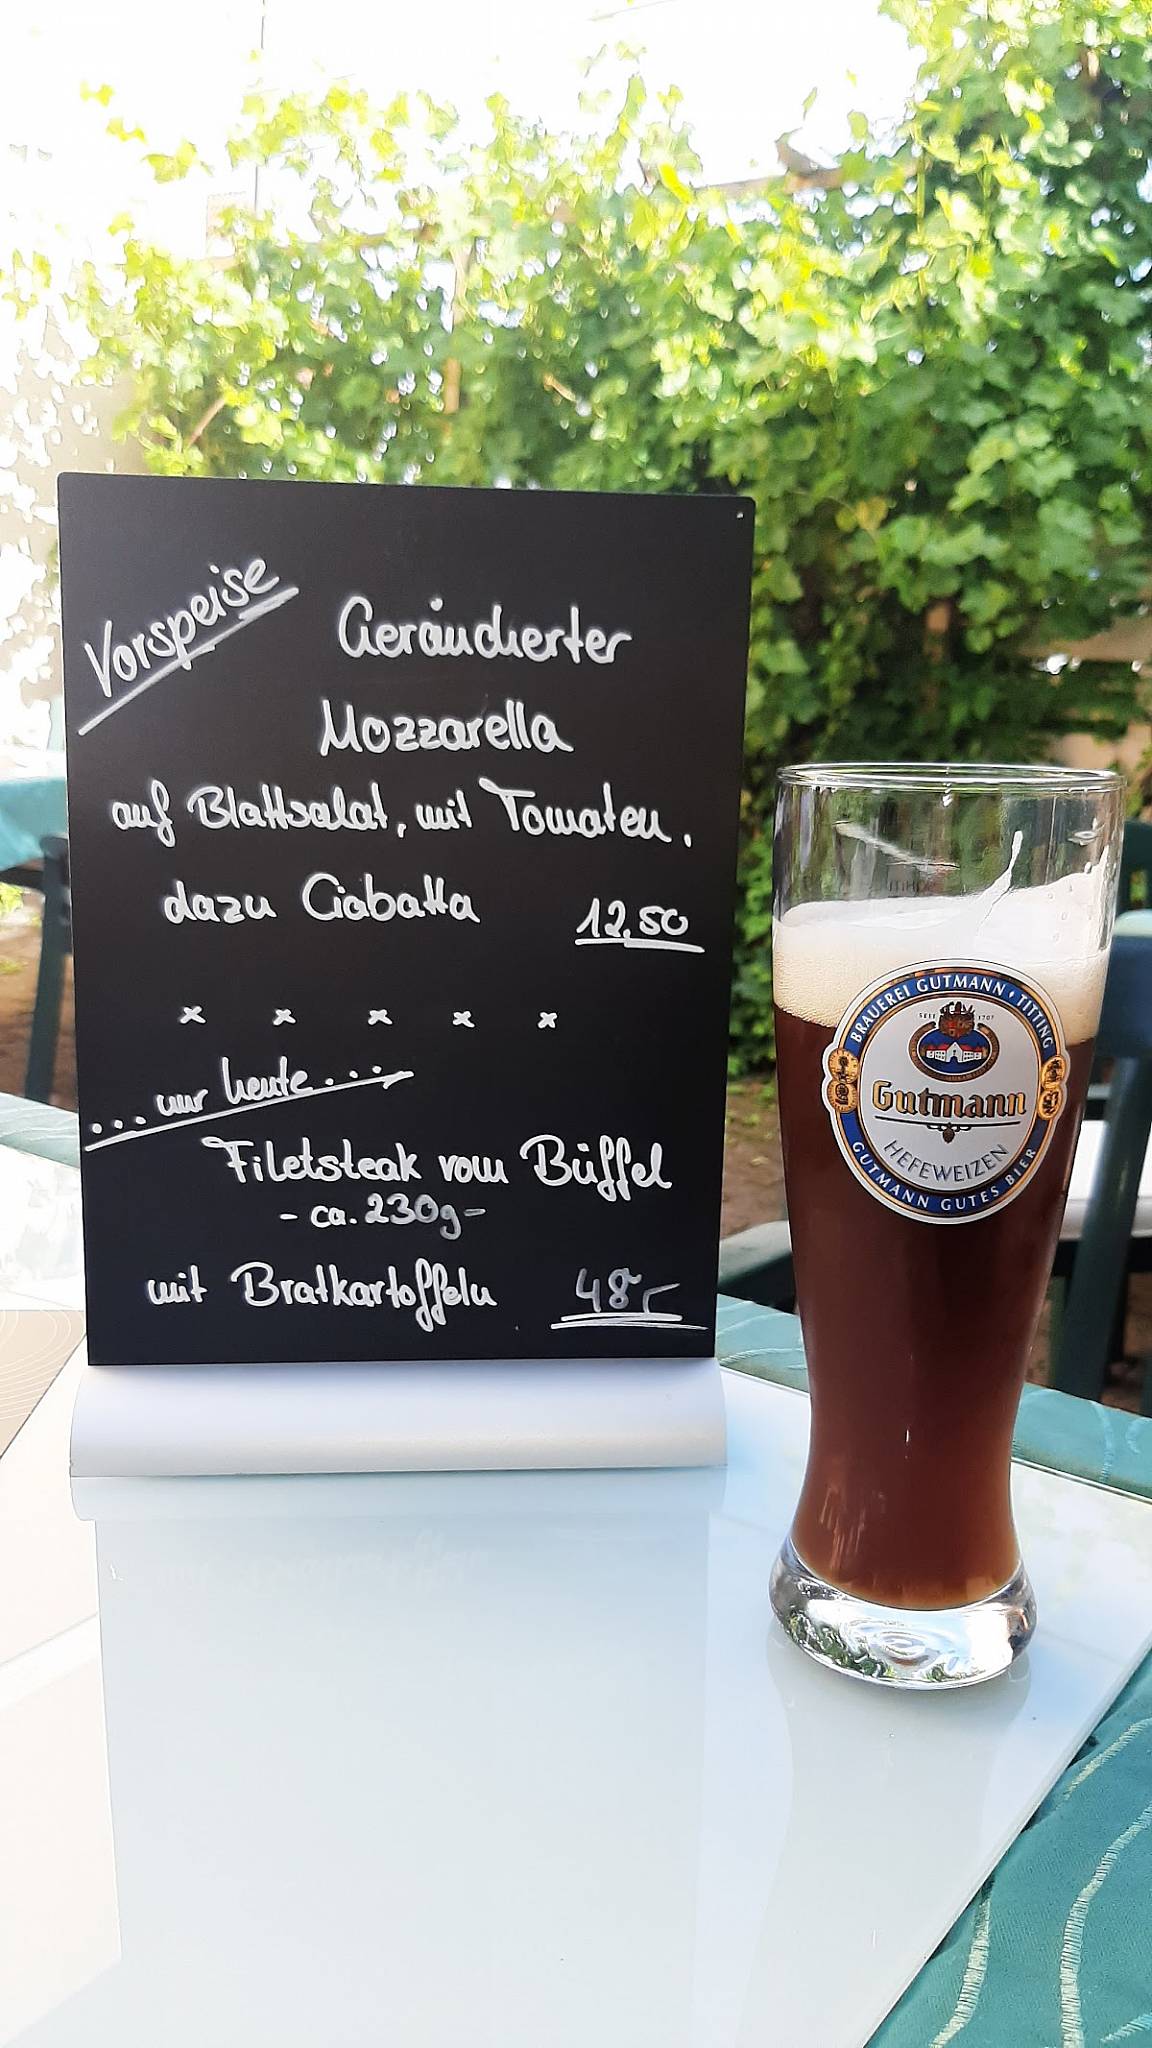 Vorspeise
Geräucherter
Mozzarella
auf Blattsalat, mit Tomaten,
dazu Ciabatta 12,50
x x x x x
...nur heute...
Filetsteak vom Büffel
- ca. 230g -
mit Bratkartoffeln 48,-
BRAUEREI GUTMANN · TITTING
SEIT 1707
Gutmann
HEFEWEIZEN
GUTMANN GUTES BIER